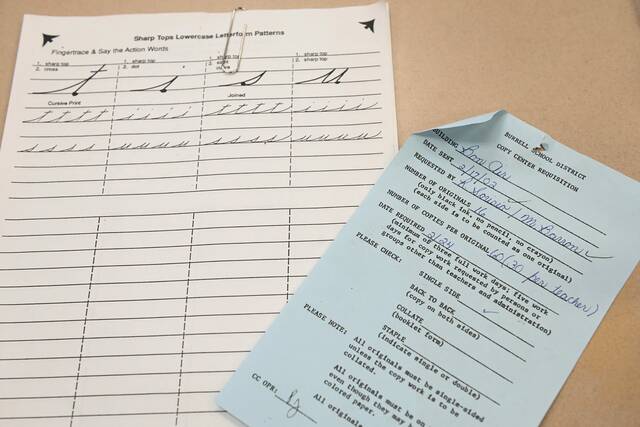 Sharp Tops Lowercase Letterform Patterns
Fingertrace & Say the Action Words
1. sharp top 1. sharp top 1. sharp top 1. sharp top
2. cross 2. dot 2.
t i s u
Cursive Print Joined
t t t t i i i i t t t t i i i i
s s s s u u u u s s s s u u u u
BURRELL SCHOOL DISTRICT
COPY CENTER REQUISITION
BUILDING Bon Air
DATE SENT 2/17/03
REQUESTED BY
NUMBER OF ORIGINALS 16
(only black ink, no pencil, no crayon)
(each side is to be counted as one original)
NUMBER OF COPIES PER ORIGINAL 60 (30 per teacher)
DATE REQUIRED 2/24
(minimum of three full work days; five work
days for copy work requested by persons or
groups other than teachers and administration)
PLEASE CHECK:
SINGLE SIDE
BACK TO BACK ✓
(copy on both sides)
COLLATE
(booklet form)
STAPLE
(indicate single or double)
PLEASE NOTE:
All originals must be single-sided
unless the copy work is to be
collated.
All originals must be on
even though they may b
colored paper.
CC OPR:
All originals